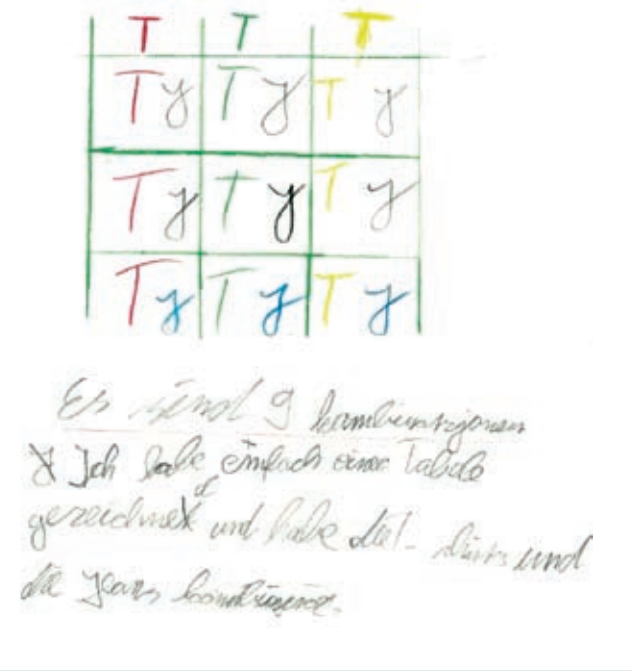 T T T
T y T y T y
T y T y T y
T y T y T y
Es sind 9 kombinazionen
Ich habe einfach eine Tabele
gezeichnet und habe die T-shirts und
die Jeans kombiniert.